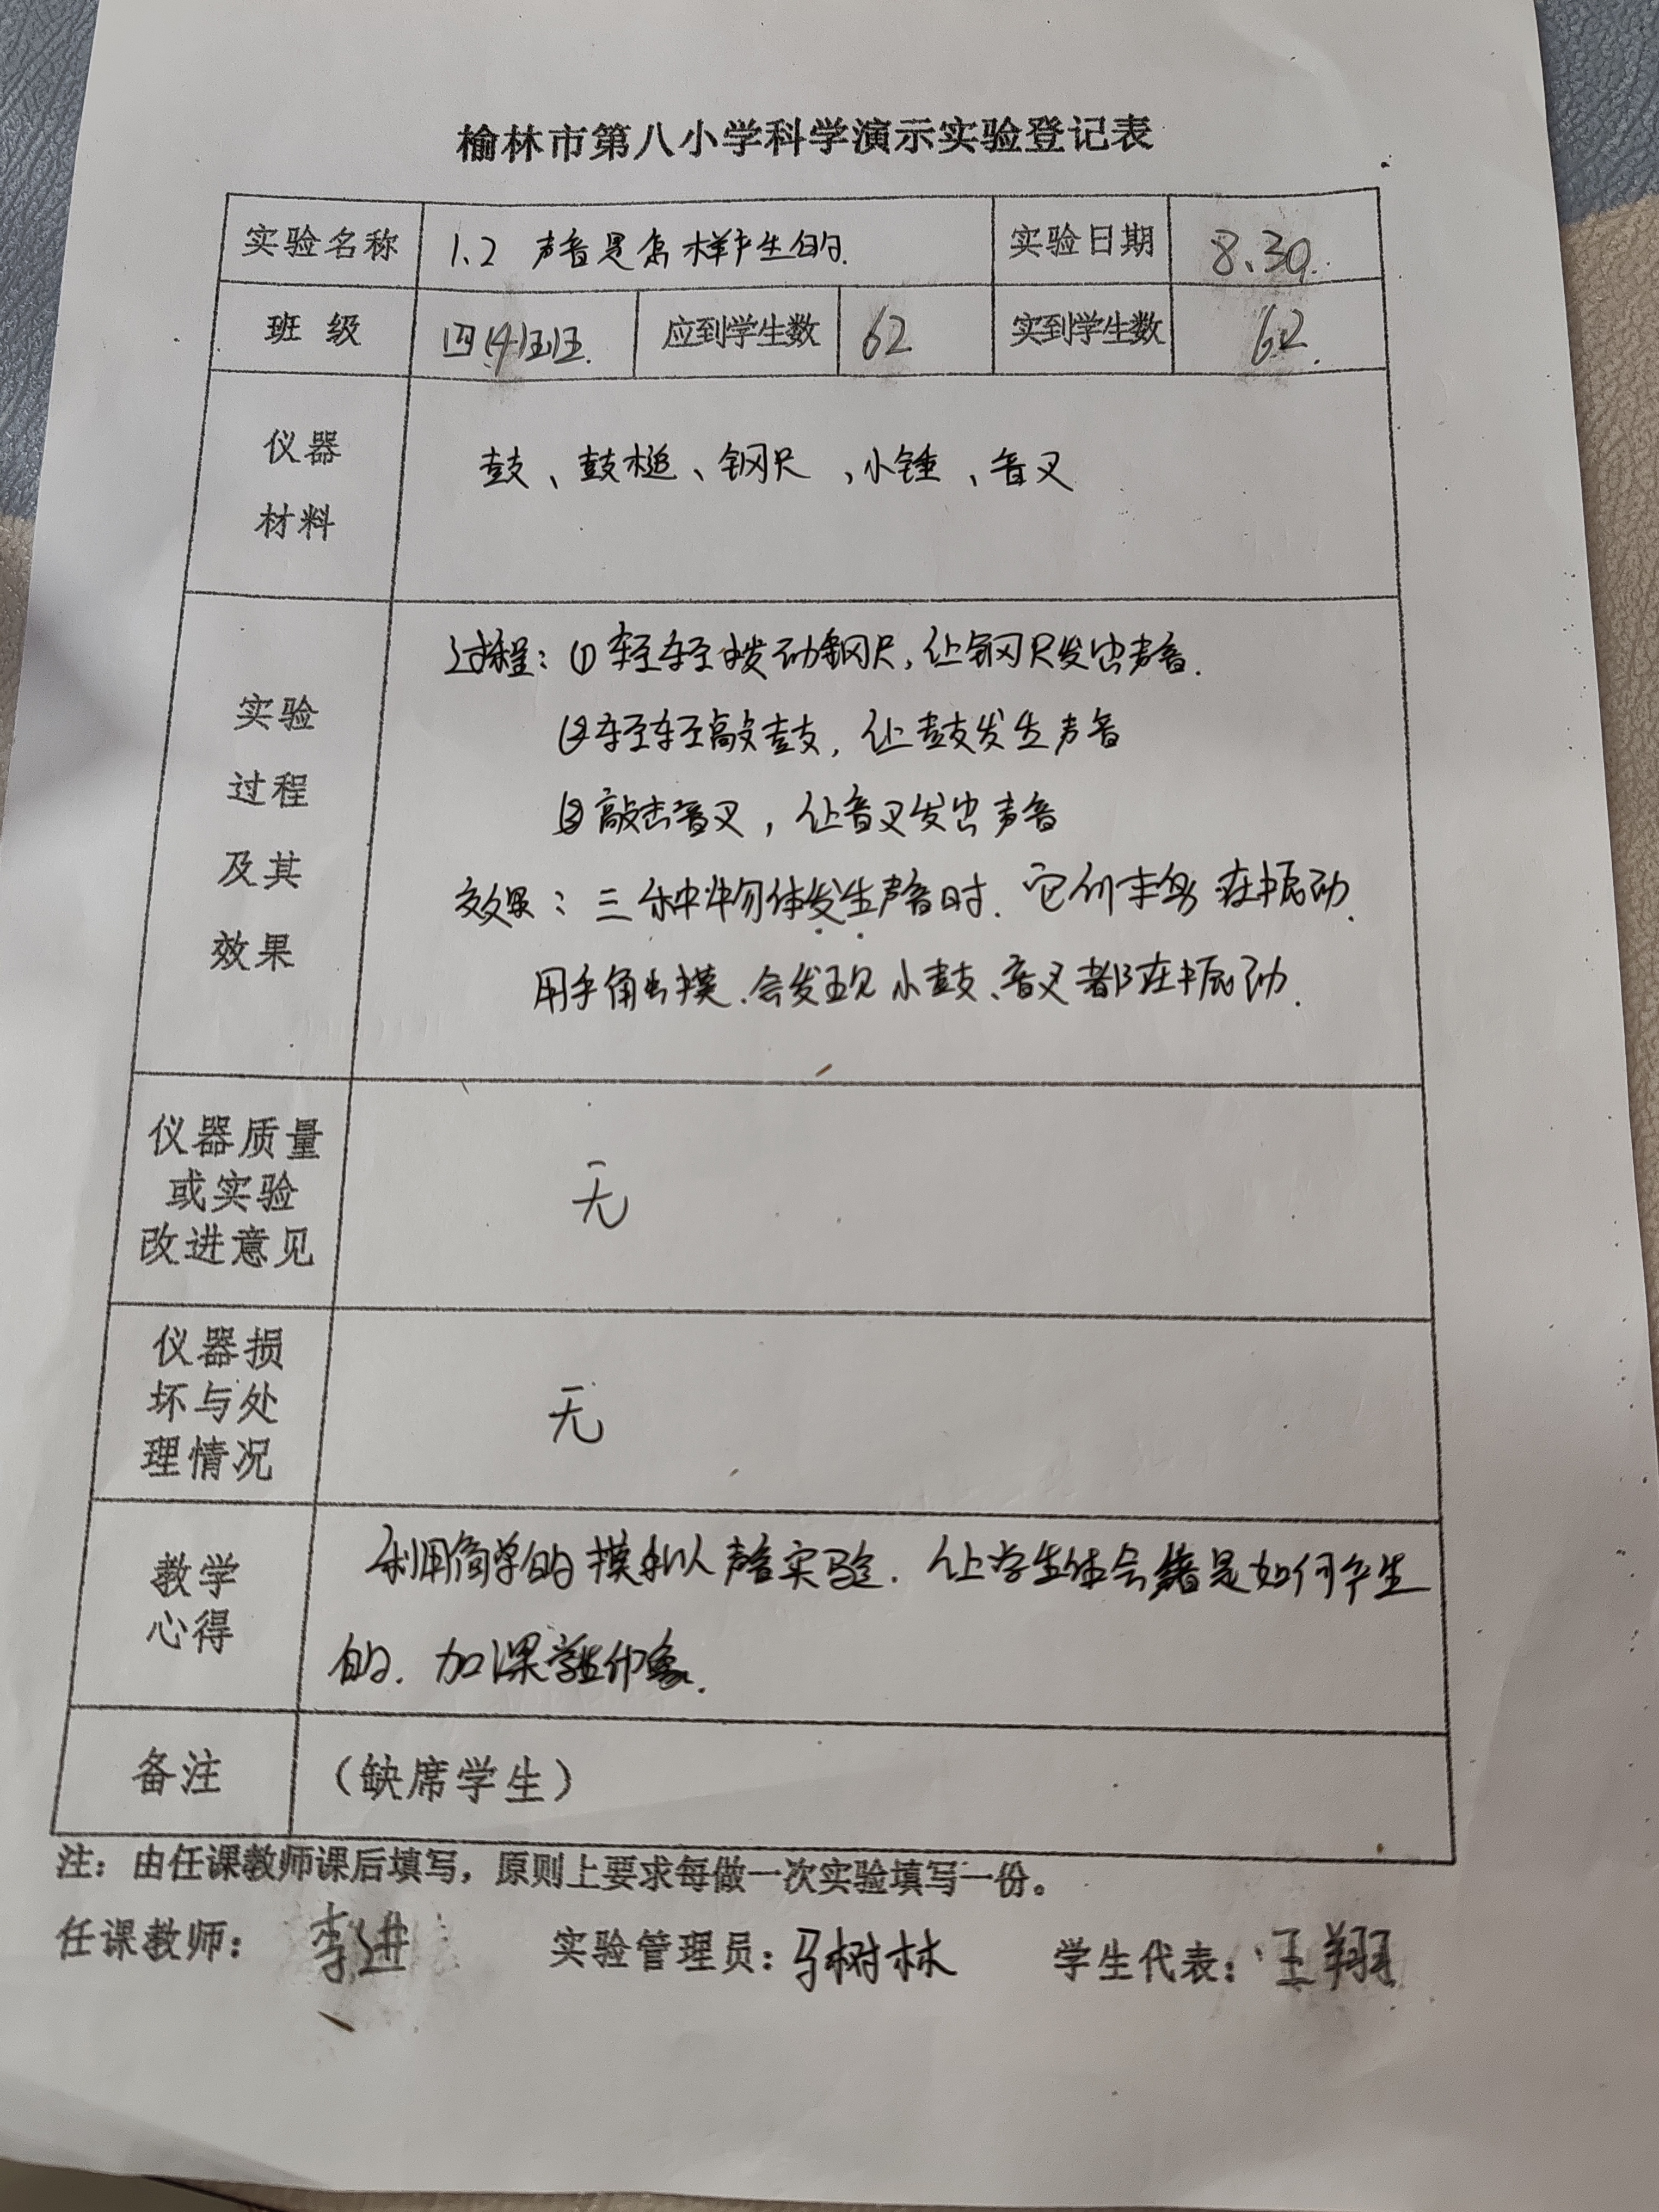 榆林市第八小学科学演示实验登记表
实验名称 1.2 声音是怎样产生的. 实验日期 8.30.
班 级 四(4)班. 应到学生数 62 实到学生数 62.
仪器
材料
鼓、鼓槌、钢尺,小锤、音叉
实验
过程
及其
效果
过程:①轻轻拨动钢尺,让钢尺发出声音.
②轻轻敲鼓,让鼓发生声音
③敲击音叉,让音叉发出声音
效果:三种物体发生声音时.它们 在振动.
用手触摸.会发现小鼓、音叉都在振动.
仪器质量
或实验
改进意见
无
仪器损
坏与处
理情况
无
教学
心得
利用简单的模拟声音实验.让学生体会声音是如何产生
的.加深学生印象.
备注 (缺席学生)
注:由任课教师课后填写,原则上要求每做一次实验填写一份。
任课教师: 李进 实验管理员:马树林 学生代表:王翔